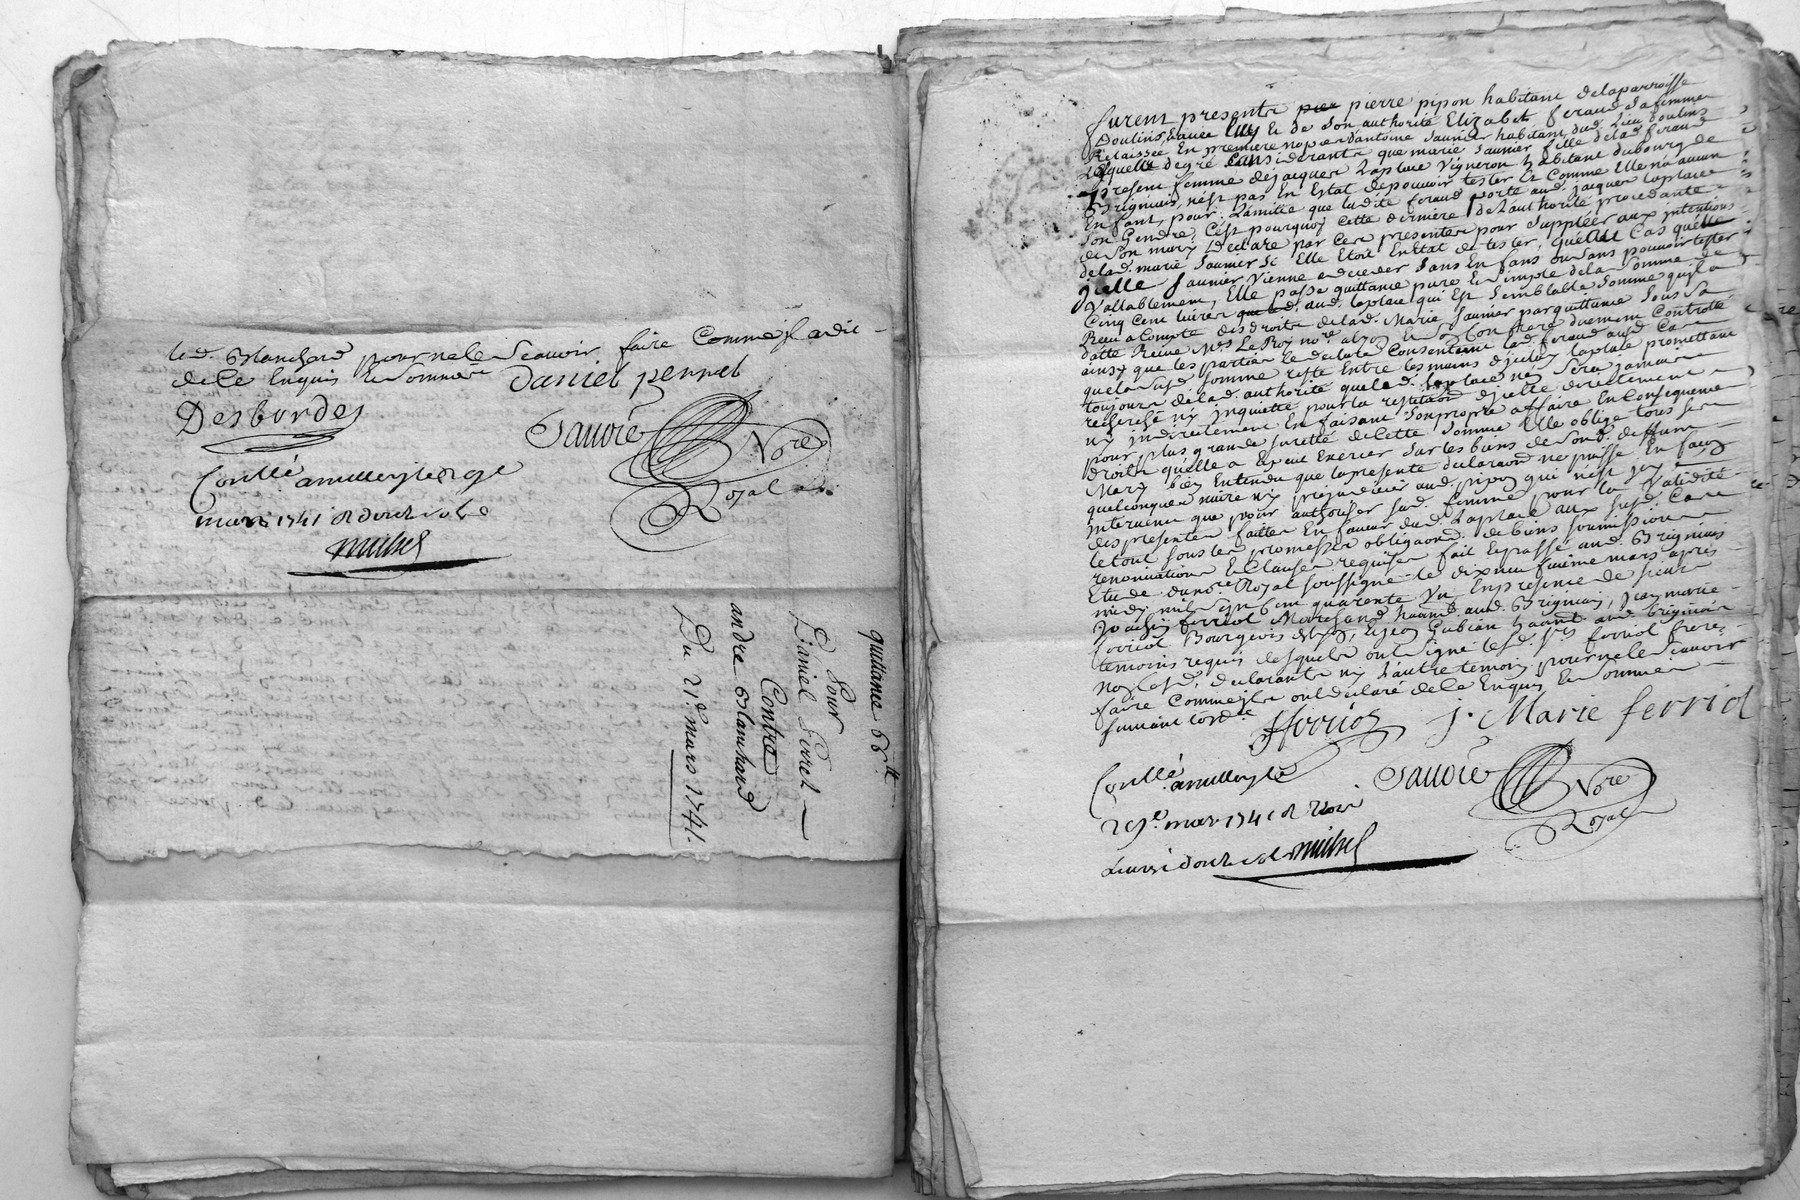 led. Blanchard pour ne le scavoir faire comme jl a dit
de ce Enquis Et Sommé Daniel perret
Desbordes
Sauoré Nore
Royal
Conllé a milleryle 29e
mars 1741 R douze sols
michel
quittance 66tt
Pour
Daniel Perret
Contre
andre Blanchard
Du 21e. mars 1741.
furent presents pier pierre pipon habitant de la parroisse
Doulins, & avec luy & de son authorité Elizabet feraud sa femme
Relaissée En premiere nopces d'antoine saunier habitant dud. Lieu doulins
Laquelle de gré Considerants que marie saunier fille de lad. feraud
present femme de jacques Laplace Vigneron habitant du bourg de
Brignais, n'est pas En Estat de pouvoir tester Et Comme Elle n'a aucun
Enfant, pour L'amitié que ladite feraud porte aud. jacques laplace
son Gendre, C'est pourquoy Cette derniere de l'authorité procedante
de son mary Declare par Ces presentes pour suppléer aux intentions
de lad. marie saunier si Elle Etoit En Etat de tester, qu'au Cas qu'elle
jcelle saunier Vienne a deceder sans Enfans ou sans pouvoir tester
Vallablement, Elle passe quittance pure & simple de la somme de
Cinq Cent livres que led. aud. laplace qui Est semblable somme qu'il a
Receu a Compte des droits de lad. Marie saunier par quittance sous sa
datte Receue Me Le Roy nore son Confrere duement Controllé
ainsy que les parties le declare Consentent lad. feraud aud. Cas
que la susd. somme reste Entre les mains d'jceluy laplace promettant
toujours de lad. authorité que led. laplace n'en sera jamais
recherché ny jnquietté pour la repetition d'jcelle directement
ny jndirectement En faisant son propre affaire En Consequence
pour plus grande suretté de Cette somme Elle oblige tous les
Droits qu'elle a Et peut Exercer sur les biens de son d. deffunt
Mary bien Entendu que la presente declaraon ne puisse En facon
quelconque nuire ny prejudicier aud. pipon qui n'est jcy
jntervenu que pour authoriser sad. femme pour la Validité
des presentes faittes En faveur dud. Laplace aux susd. Cas
le tout sous les promesses obligaons de biens soumissions
renonciations & Clauses requises fait & passé aud. Brignais
Etude du nore Royal soussigné le dix neufuieme mars apres
midy mil sept Cent quarente Un En presence de sieur
Joachin ferriol Marchand haand. aud. Brignais, jean marie
ferriol Bourgeois & jean Gubian haant aud. brignais
temoins requis lesquels ont signé lesd. srs ferriol freres
non lesd. declarants ny l'autre temoin pour ne le scavoir
faire Comme jls ont declaré de ce Enquis & sommé
suivant lordce
Jferriol J. Marie ferriol
Conllé a milleryle Sauoré Nore
29e. mars 1741 R Royal
Livre douze sols michel